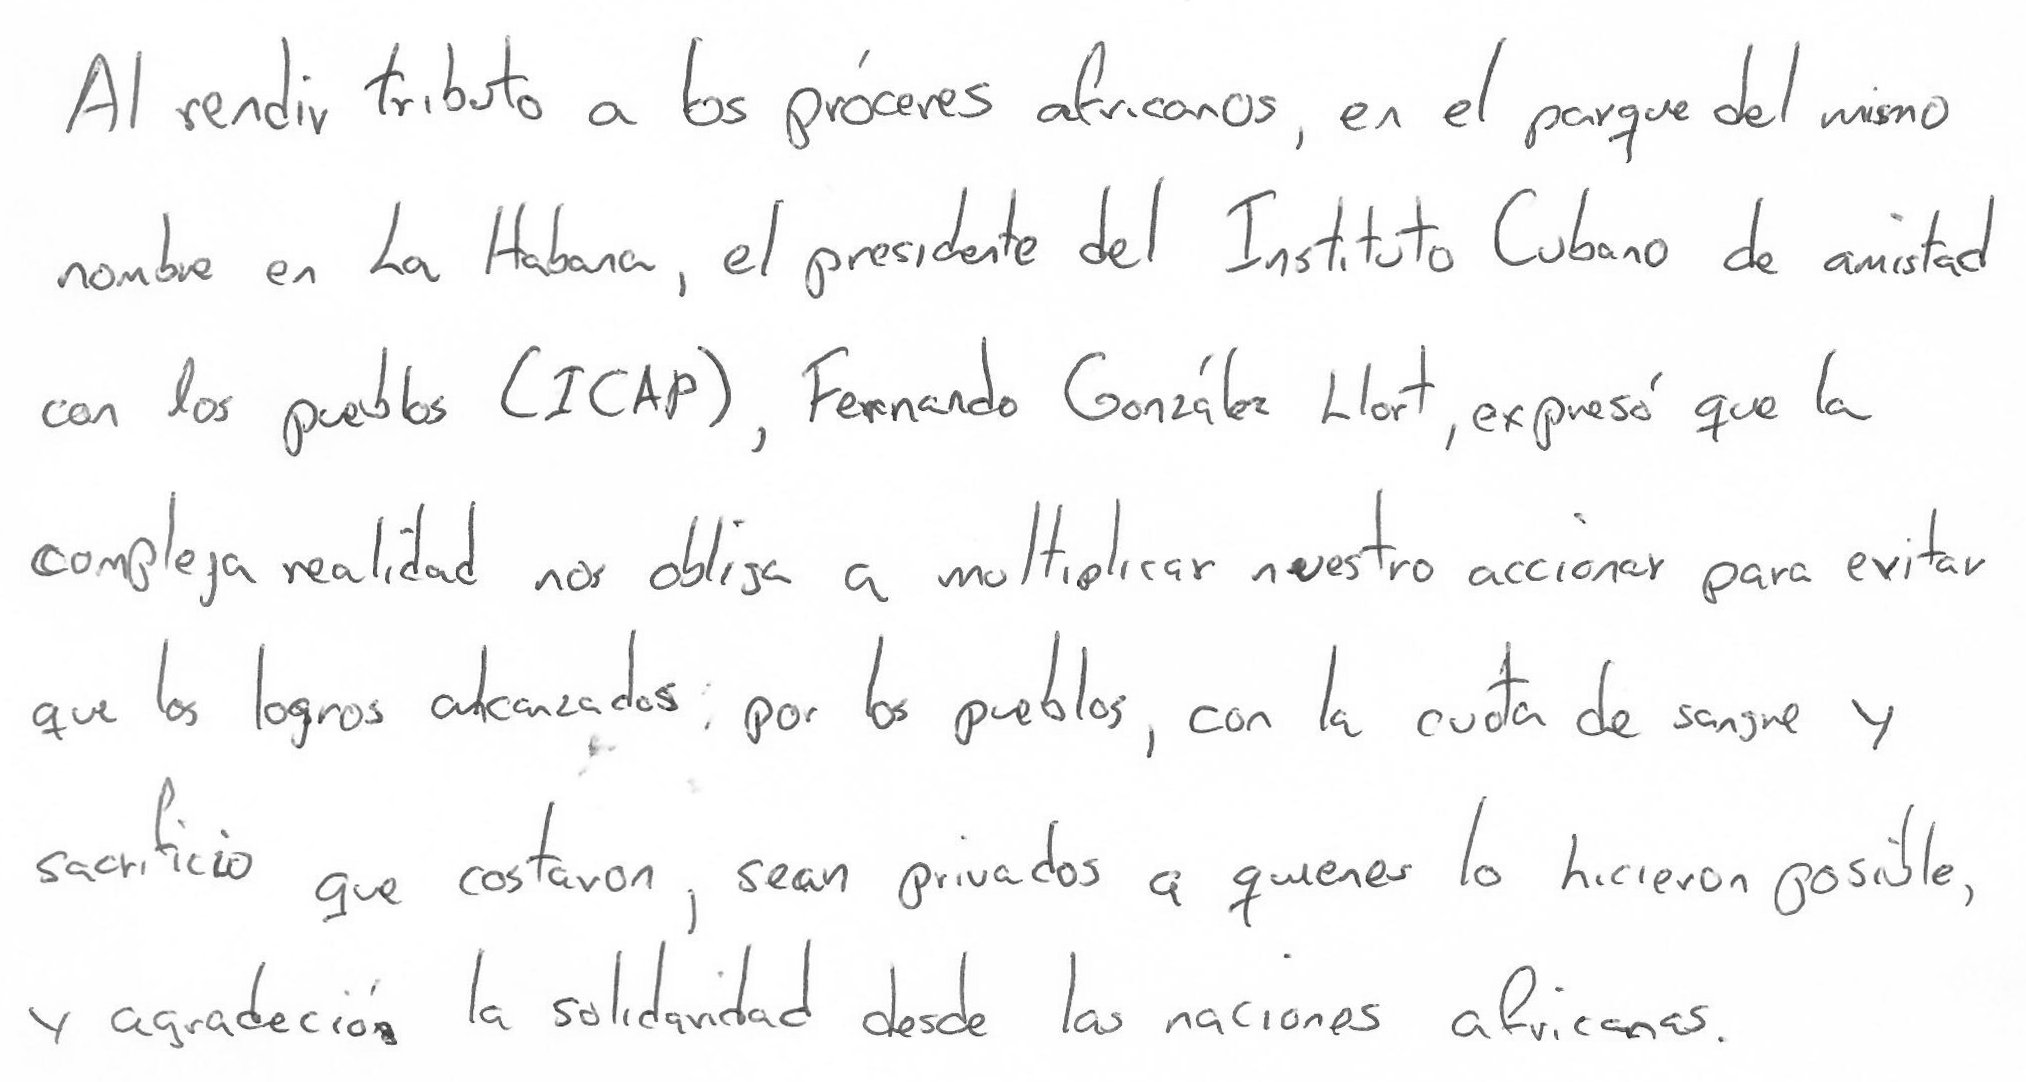 Al rendir tributo a los próceres africanos, en el parque del mismo
nombre en La Habana, el presidente del Instituto Cubano de amistad
con los pueblos (ICAP), Fernando González Llort, expresó que la
compleja realidad nos obliga a multiplicar nuestro accionar para evitar
que los logros alcanzados, por los pueblos, con la cuota de sangre y
sacrificio que costaron, sean privados a quienes lo hicieron posible,
y agradeción la solidaridad desde las naciones africanas.